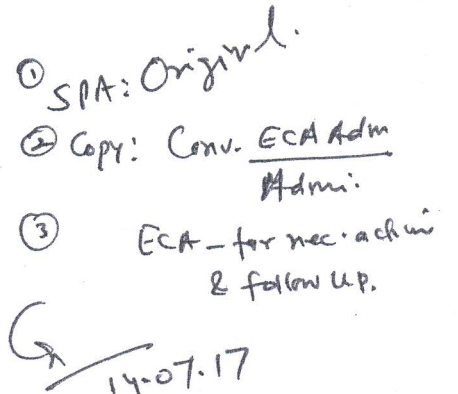 ① SPA: Original.
② Copy: Conv. ECA Adm
Admi.
③ ECA - for nec. action
& follow up.
14.07.17